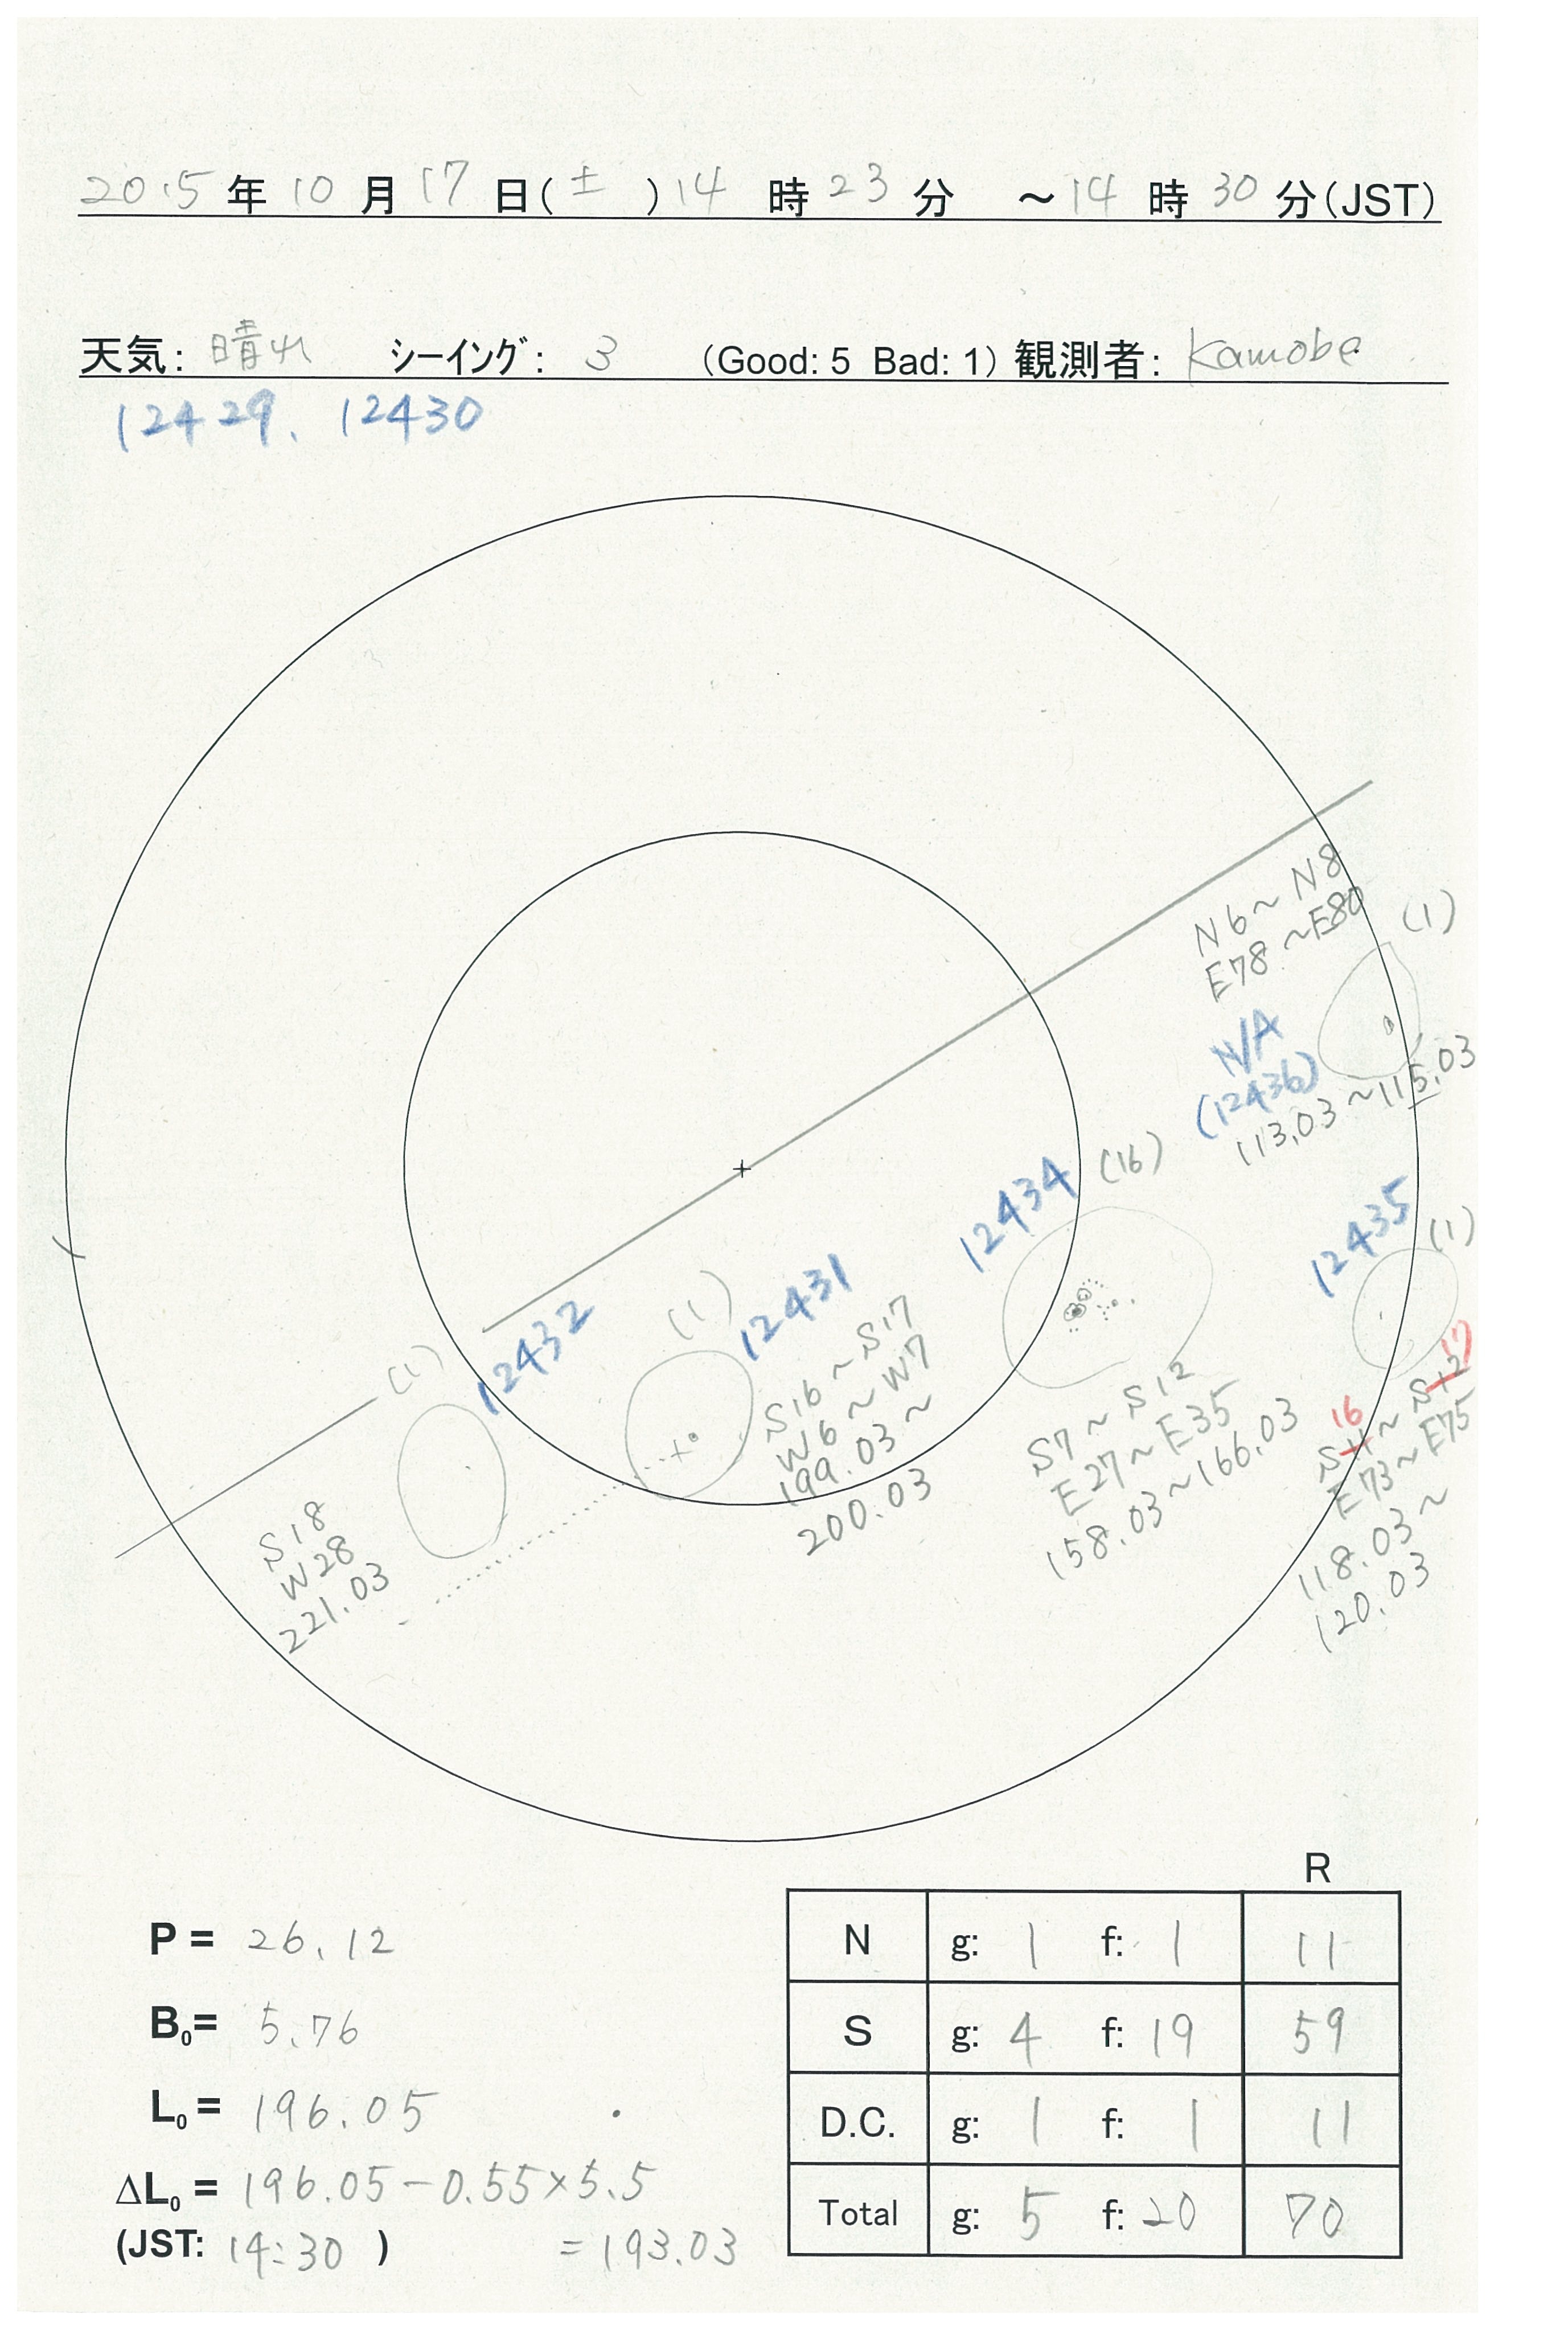 2015年 10月 17日(土)14時 23分 ～14時 30分(JST)
天気: 晴れ ｼｰｲﾝｸﾞ: 3 (Good: 5 Bad: 1) 観測者: Kamobe
12429、12430
N6~N8
E78~E80
(1)
N/A
(12436)
113.03~115.03
12434
(16)
S7~S12
E27~E35
158.03~166.03
12435
(1)
16 17
S11~S12
E73~E75
118.03~
120.03
(1)
12431
S16~S17
W6~W7
199.03~
200.03
12432
(1)
S18
W28
221.03
P = 26.12
B₀= 5.76
L₀= 196.05
ΔL₀= 196.05-0.55×5.5
(JST: 14:30 ) =193.03
R
N g: 1 f: 1 11
S g: 4 f: 19 59
D.C. g: 1 f: 1 11
Total g: 5 f: 20 70